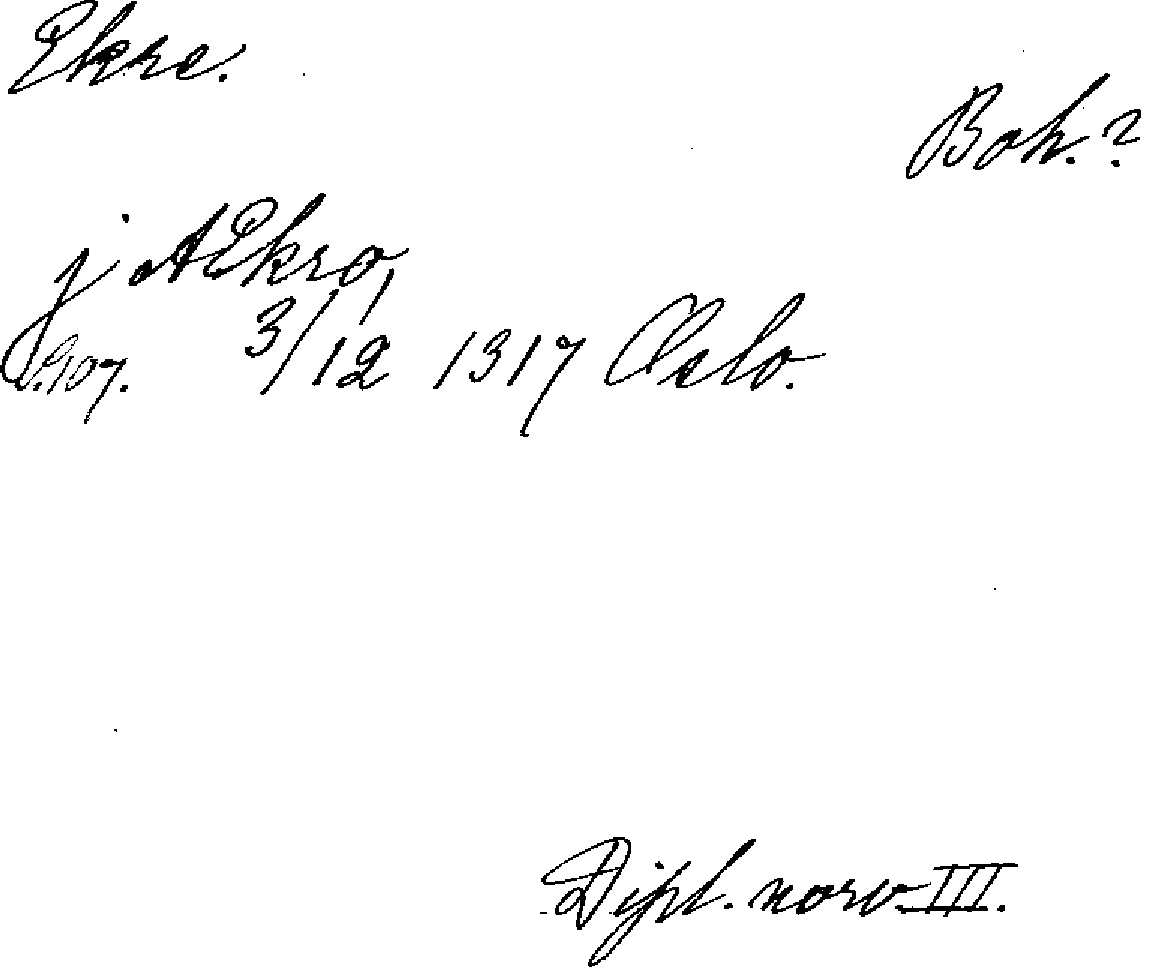 Ekre.
Boh.?
j Æ Ekro,
3/12 1317 Oslo.
S. 107.
Dipl. norv. III.